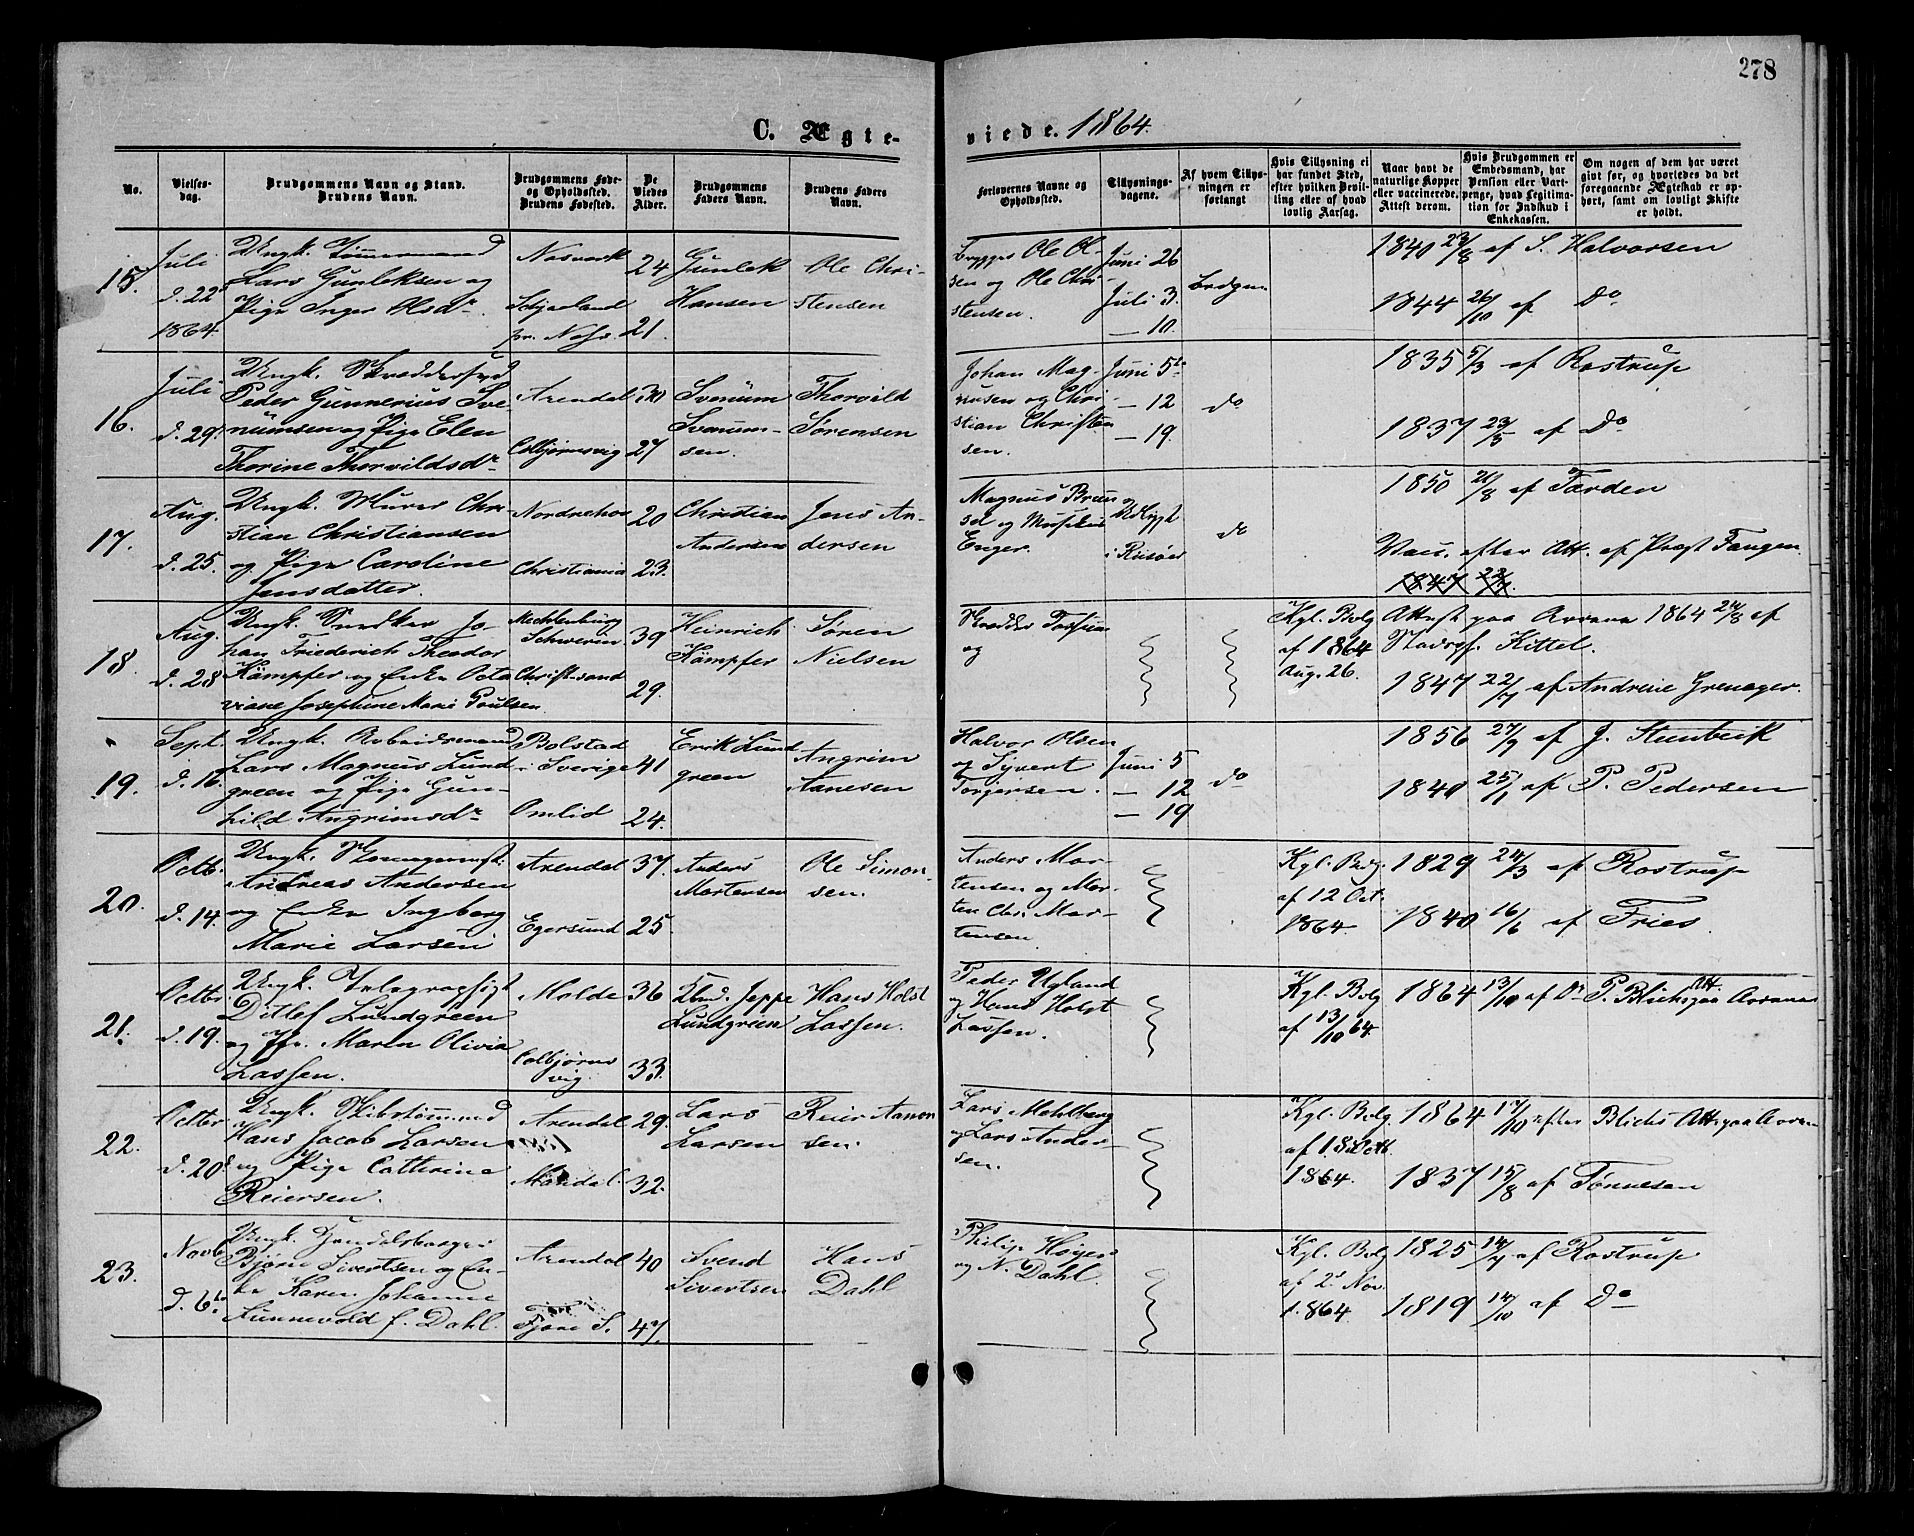 278
C. Ægte-
viede. 1864.
No.
Vielses-
dag.
Brudgommens Navn og Stand.
Brudens Navn.
Brudgommens Føde-
og Opholdssted.
Brudens Fødested.
De
Viedes
Alder.
Brudgommens
Faders Navn.
Brudens Faders
Navn.
Forlovernes Navne og
Opholdssted.
Tillysnings-
dagene.
Af hvem Tillys-
ningen er
forlangt
Hvis Tillysning ei
har fundet Sted,
efter hvilken Bevil-
ling eller af hvad
lovlig Aarsag.
Naar havt de
naturlige Kopper
eller vaccinerede.
Attest derom.
Hvis Brudgommen er
Embedsmand, har
Pension eller Vart-
penge, hvad Legitima-
tion for Indskud i
Enkekassen.
Om nogen af dem har været
gift før, og hvorledes da det
foregaaende Ægteskab er op-
hørt, samt om lovligt Skifte
er holdt.
15.
Juli
d. 22
1864.
Ungk. Tømmermand
Lars Gunleksen og
Pige Inger Olsdr.
24
21.
Gunlek
Hansen
Ole Chri-
stensen
Ole Ol-
sen og Ole Chri-
stensen.
Juni 26
Juli 3.
— 10.
Brdgm
1840 23/8 af S. Halvorsen
1844 26/10 af Do
16.
Juli
d. 29.
Ungk. Skræddersvd
Peder Gunnerius Sve-
numsen og Pige Elen
Thorine Thorvildsdr
Arendal
Colbjørnsvig
30
27
Svenum
Svenum-
sen.
Thorvild
Sørensen
Johan Mag-
nusen og Chri-
stian Christen
sen.
Juni 5te
— 12
— 19.
do
1835 5/3 af Rostrup
1837 23/5 af Do
17.
Aug.
d. 25.
Ungk. Murer Chri-
stian Christiansen
og Pige Caroline
Jensdatter.
Nordrehov
Christiania
20
23.
Christian
Andersen
Jens An-
dersen
Magnus Brun
og Musikus
Enger.
i Risøer
do
1850 21/8 af Farden
Vacc. efter Att. af Prost Fangen
1847 22/7.
18.
Aug.
d. 28
Ungk. Snedker Jo-
han Friederich Theodor
Kämpfer og Enke Octa
viane Josephine Marie Poulsen
Mechlenburg
Schwerin
Christiansand
39
29.
Heinrich
Kämpfer
Søren
Nielsen
Skrædder
og
Kgl. Bvlg
af 1864
Aug. 26.
Attest paa Avrana 1864 24/8 af
Stadsf. Kittel.
1847 22/7 af Andreie Grenager.
19.
Sept.
d. 16.
Ungk. Arbeidsmand
Lars Magnus Lund
green og Pige Gun-
hild Angrimsdr
Bolstad
i Sverige
Omlid
41
24.
Erik Lund
green
Angrim
Aanesen
Halvor Olsen
og Syvert
Torgersen.
Juni 5
— 12
— 19
do
1856 27/9 af J. Stenbeik
1840 25/1 af P. Pedersen
20.
Octb.
d. 14.
Ungk.
Andreas Andersen
og Enke Ingborg
Marie Larsen
Arendal
Egersund
37.
25.
Anders
Mortensen
Ole Simon-
sen.
Anders Mor-
tensen og Mor-
ten Chr. Mor-
tensen.
Kgl. Bvlg.
af 12 Oct.
1864.
1829 24/3 af Rostrup
1840 16/6 af Fries.
21.
Octbr
d. 19.
Ungk. Telegrafist
Ditlef Lundgreen
og Jfr. Maren Olivia
Lassen.
Molde
Colbjørns
vig.
36
33.
Kbmd. Jeppe
Lundgreen
Hans Holst
Lassen.
Peder Ugland
og Hans Holst
Lassen.
Kgl. Bvlg
af 13/10 64.
1864 13/10 af Dr P. Blichs Att. paa Avrana
22.
Octbr
d. 20d
Ungk. Skibstømmrmd
Hans Jacob Larsen
og Pige Catherine
Reiersen.
Arendal
Mandal.
29.
32.
Lars
Larsen
Reier Aanon
sen.
Lars Mehlberg
og Lars Ander-
sen.
Kgl. Bvlg.
af 18 Octb
1864.
1864 17/10 efter Blichs Att. paa Avran
1837 15/8 af Tønnesen
23.
Novb
d. 6te
Ungk. Handelsborger
Bjørn Sivertsen og En-
ke Karen Johanne
Sunnevold f. Dahl.
Arendal
Fjære S.
40
47.
Svend
Sivertsen
Hans
Dahl
Philip Høyer
og N. Dahl.
Kgl. Bvlg
af 2d Nov.
1864
1825 14/7 af Rostrup
1819 14/10 af Do